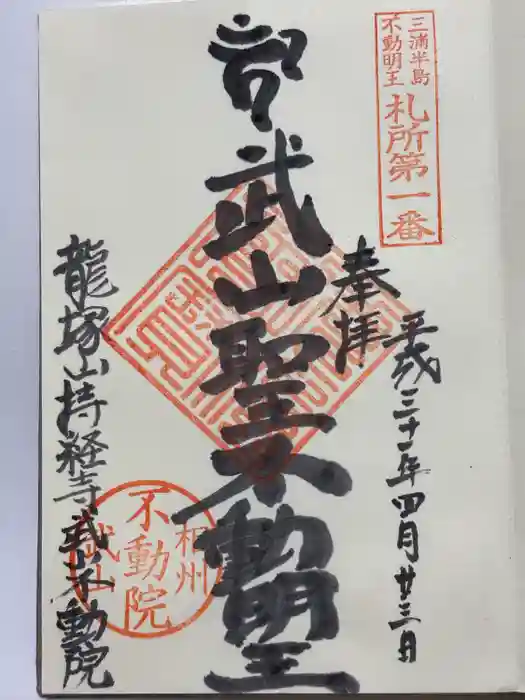 三浦半島
不動明王
札所第一番
奉拝
平成三十一年四月廿三日
武山聖不動明王
相州
不動院
武山
龍塚山持経寺武山不動院